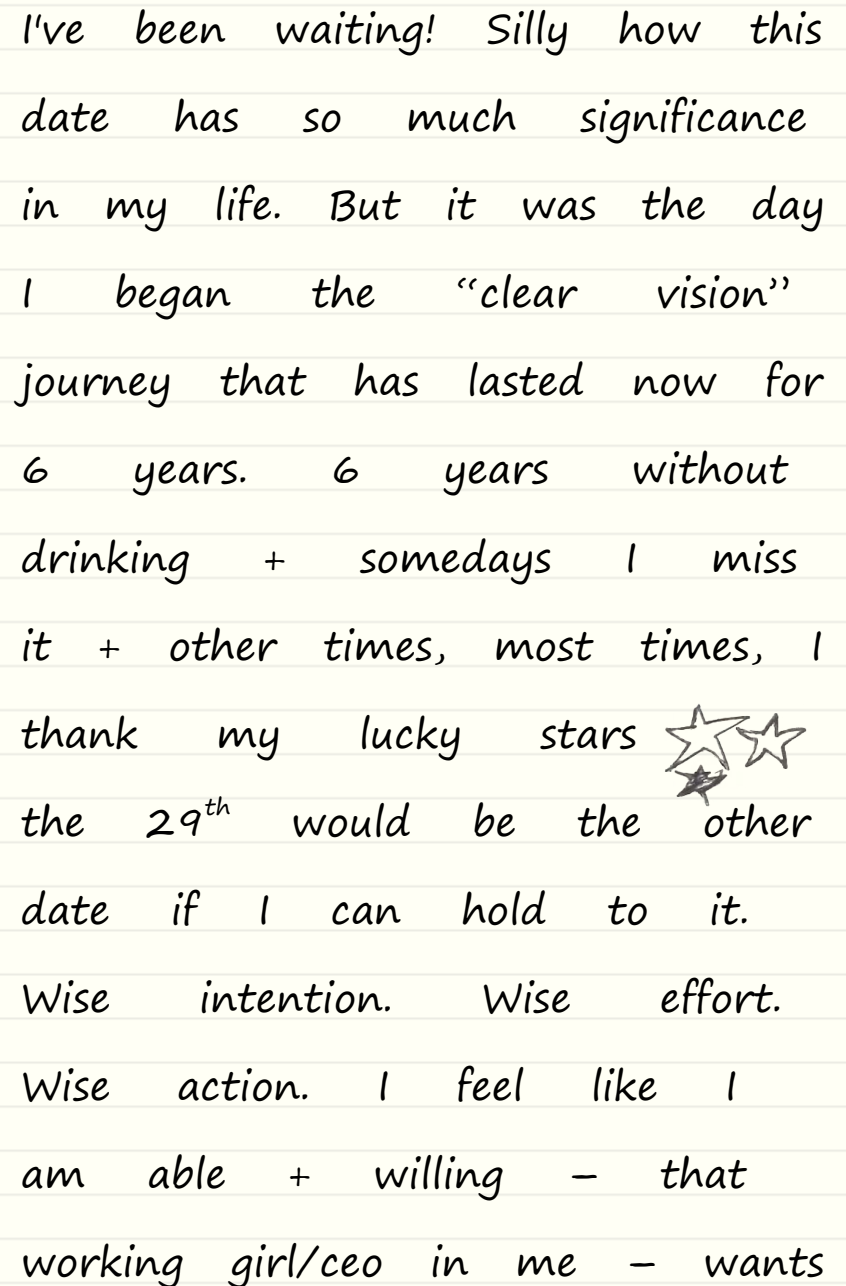 I've been waiting! Silly how this
date has so much significance
in my life. But it was the day
I began the “clear vision”
journey that has lasted now for
6 years. 6 years without
drinking + somedays I miss
it + other times, most times, I
thank my lucky stars
the 29th would be the other
date if I can hold to it.
Wise intention. Wise effort.
Wise action. I feel like I
am able + willing – that
working girl/ceo in me – wants